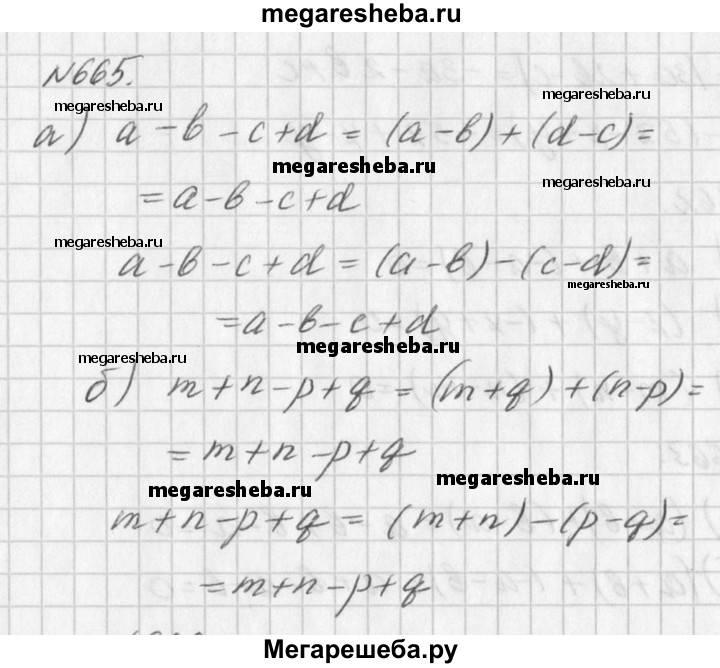 megaresheba.ru
№665.
megaresheba.ru
megaresheba.ru
а) a - b - c + d = (a - b) + (d - c) =
megaresheba.ru
megaresheba.ru
= a - b - c + d
megaresheba.ru
a - b - c + d = (a - b) - (c - d) =
megaresheba.ru
= a - b - c + d
megaresheba.ru
megaresheba.ru
б) m + n - p + q = (m + q) + (n - p) =
= m + n - p + q
megaresheba.ru
megaresheba.ru
m + n - p + q = (m + n) - (p - q) =
= m + n - p + q
Мегарешеба.ру